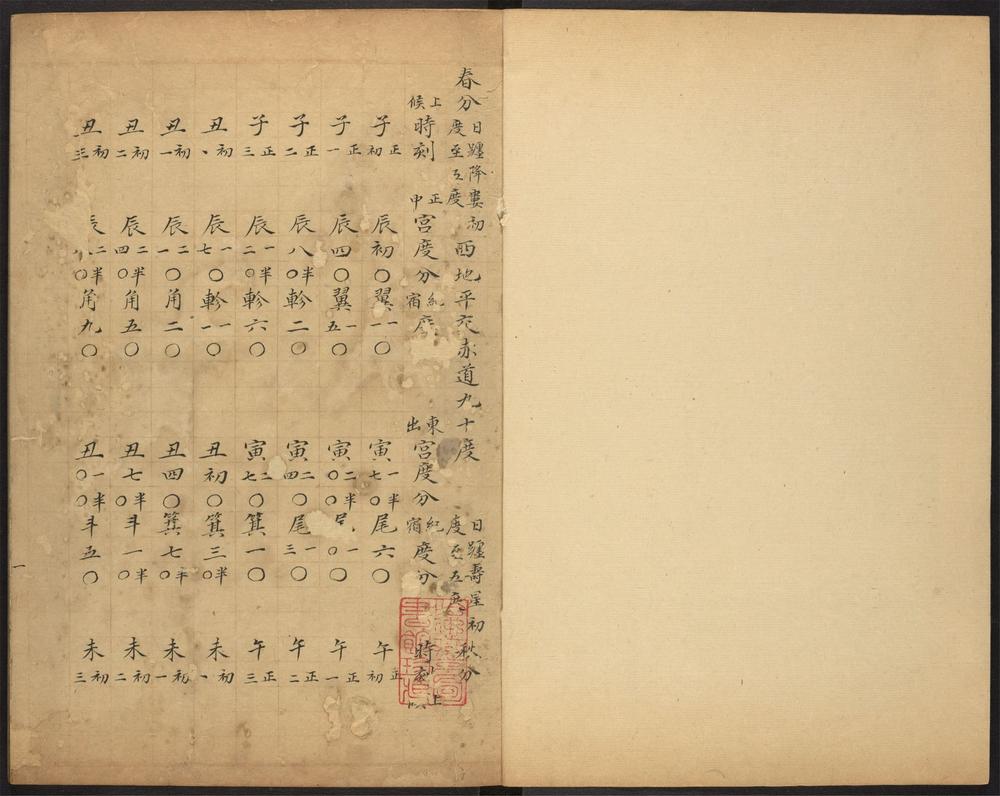 春分 日躔降婁初度至五度 西地平交赤道九十度 日躔壽星初度至五度 秋分
上候 時刻 正中 宮度分 紀宿度 東出 宮度分 紀宿度分 時刻 上
子正初 辰初〇翼一一〇 寅一七半〇尾六〇 午正初
子正一 辰四〇翼一五〇 寅二〇半〇一〇〇 午正一
子正二 辰八半〇軫二〇 寅二四〇尾一三〇 午正二
子正三 辰一二半〇軫六〇 寅二七〇箕一〇 午正三
丑初、 辰一七〇軫一一〇 丑初〇箕三半〇 未初、
丑初一 辰二一〇角二〇 丑四〇箕七半〇 未初一
丑初二 辰二四半〇角五〇 丑七半〇斗一半〇 未初二
丑初三 辰二半〇角九〇 丑一〇半〇斗五〇 未初三
一